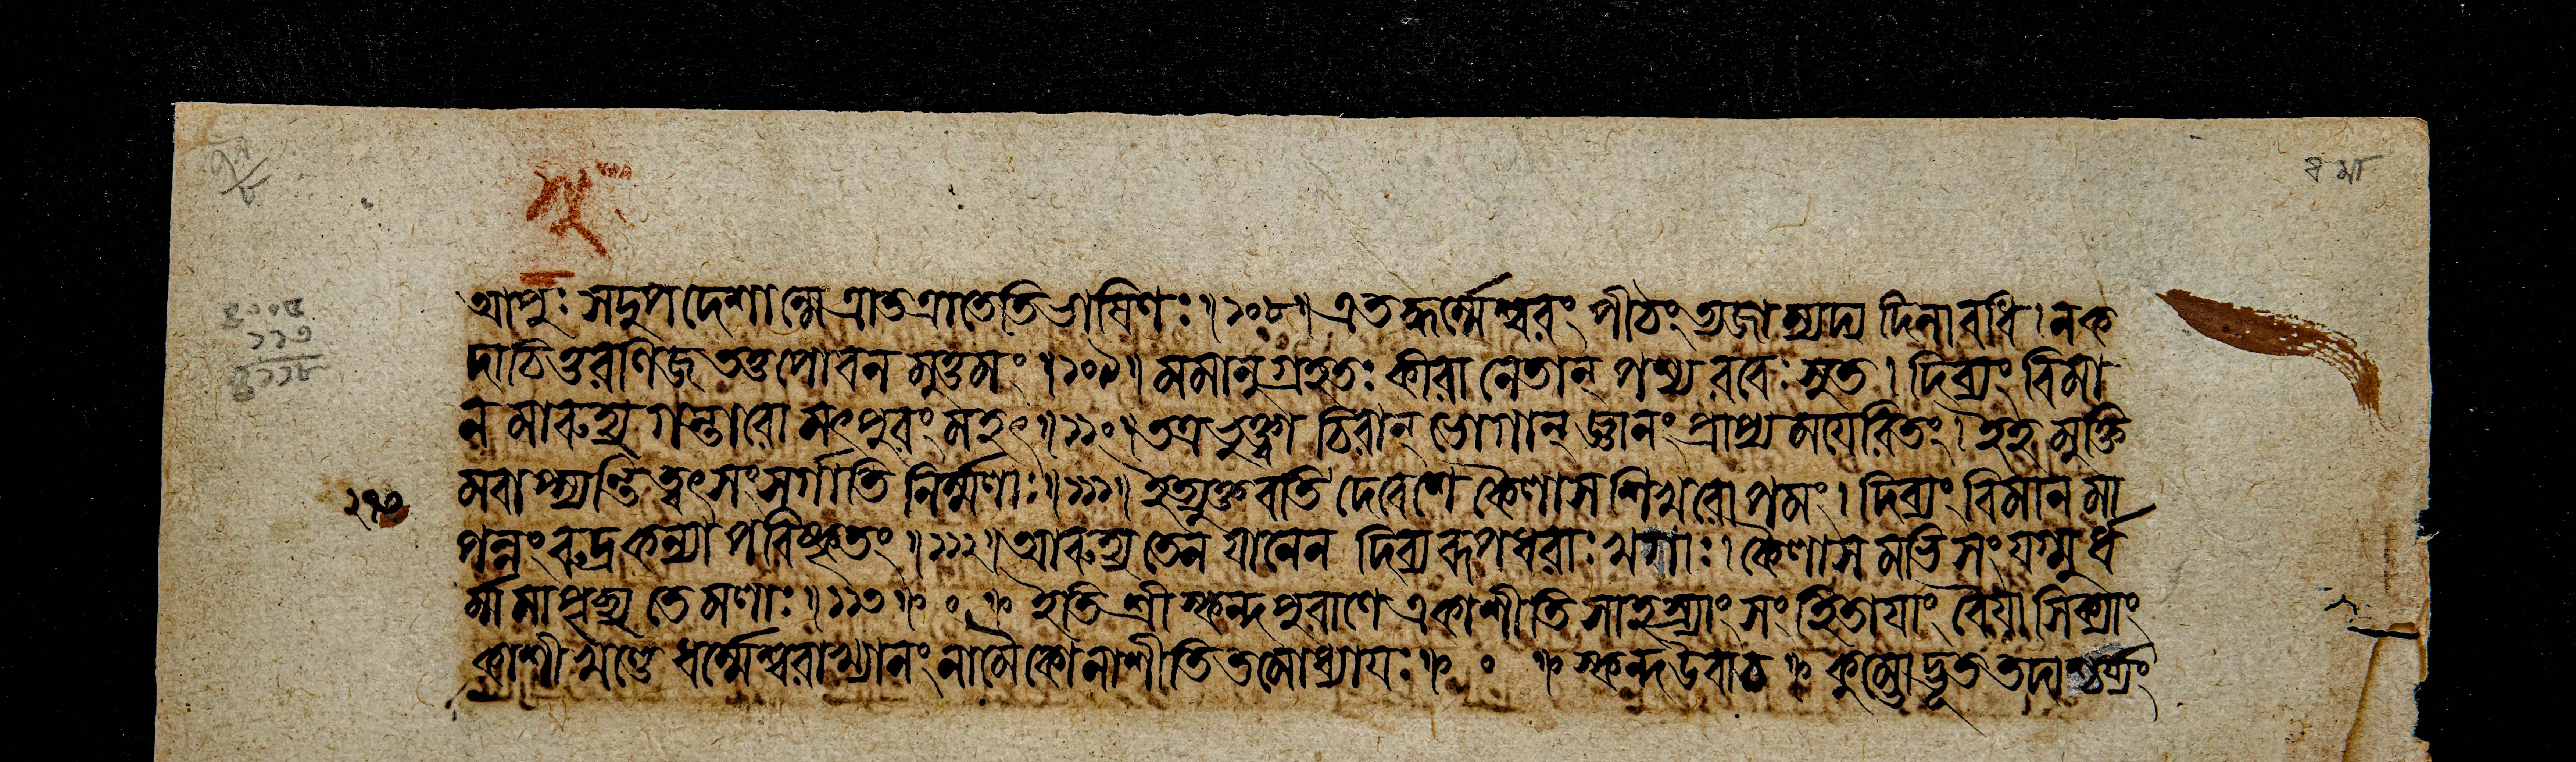 আপুঃ সদুপদেশান্মে ভ্রাতভ্রাতেতি ভাষিণঃ ॥১০৮॥ এতদ্ধর্ম্মেশ্বরং পীঠং ত্যজাম্যদ্য দিনাবধি । ন ক
দাচিত্তরণিজ তত্তপোবন মুত্তমং ॥১০৯॥ মমানুগ্রহতঃ কীরা নেতান্ পশ্য রবেঃ সুত । দিব্যং বিমা
ন মারুহ্য গন্তারো মৎপুরং মহৎ ॥১১০॥ তত্র ভুক্ত্বা চিরান্ ভোগান্ জ্ঞানং প্রাপ্য ময়েরিতং । ইহ মুক্তি
মবাপ্স্যন্তি ত্বৎসংসর্গাতি নির্ম্মলাঃ ॥১১১॥ ইত্যুক্তবতি দেবেশে কৈলাস শিখরোপমং । দিব্যং বিমান মা
পন্নং রুদ্রকন্যা পরিষ্কৃতং ॥১১২॥ আরুহ্য তেন যানেন দিব্যরূপধরাঃ খগাঃ । কৈলাস মভিসংযগ্মুর্ধ
র্মমাপৃচ্ছ্য তেমলাঃ ॥১১৩ ॥ ০ ॥ ইতি শ্রীস্কন্দপুরাণে একাশীতি সাহস্র্যাং সংহিতায়াং বৈয়াসিক্যাং
কাশীখণ্ডে ধর্ম্মেশ্বরাখ্যানং নামৈকোনাশীতিতমোধ্যায়ঃ ॥ ০ ॥ স্কন্দউবাচ ॥ কুম্ভোদ্ভূত তদাশ্চর্য্যং